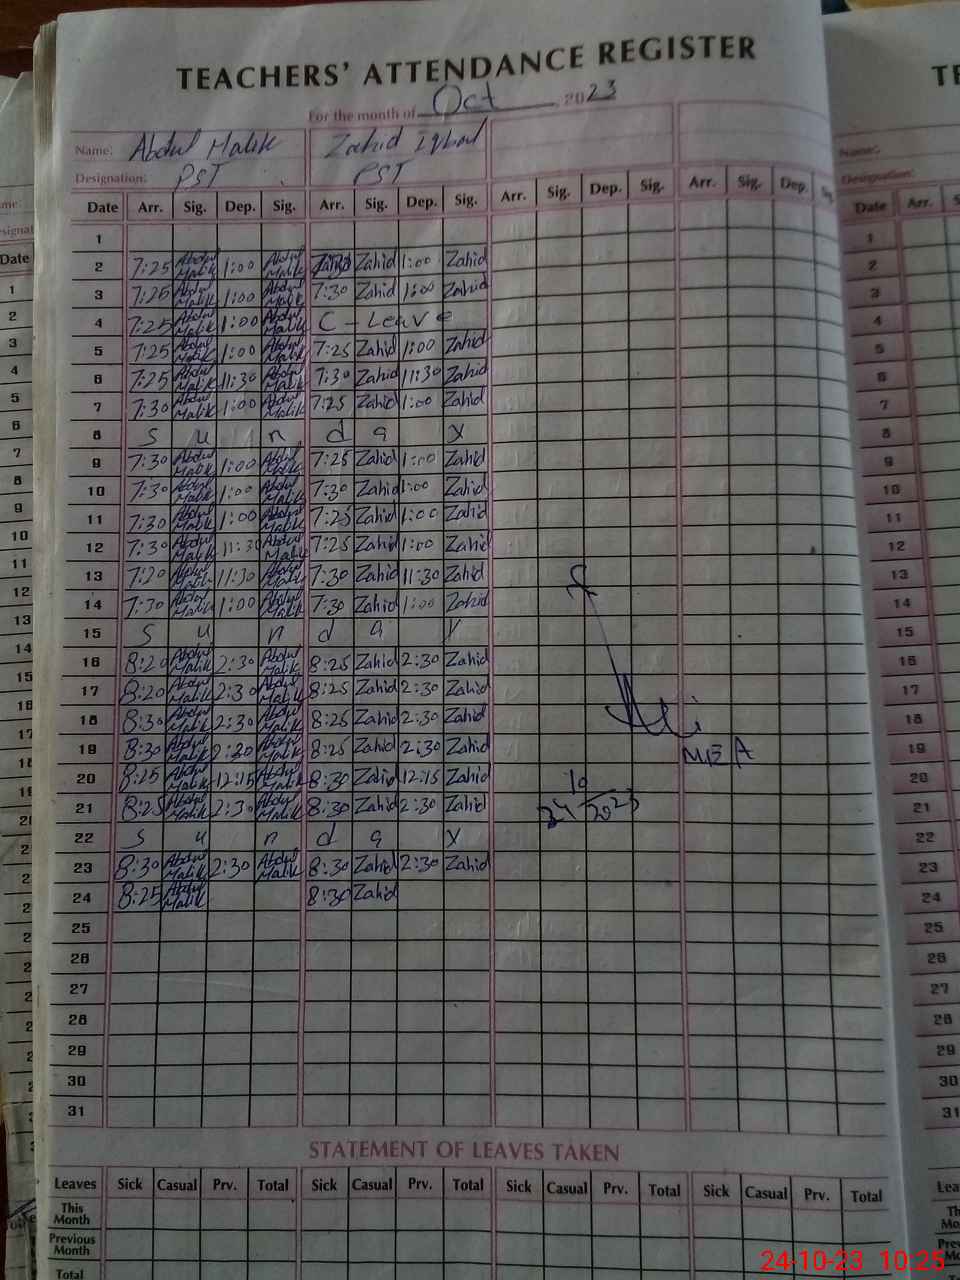 TEACHERS' ATTENDANCE REGISTER
For the month of Oct 2023
Name: Abdul Malik Zahid Iqbal
Designation: PST PST
Date Arr. Sig. Dep. Sig. Arr. Sig. Dep. Sig. Arr. Sig. Dep. Sig. Arr. Sig. Dep. Sig.
1
2 7:25 Abdul Malik 1:00 Abdul Malik Zahid 1:00 Zahid
3 7:25 Abdul Malik 1:00 Abdul Malik 7:30 Zahid 1:00 Zahid
4 7:25 Abdul Malik 1:00 Abdul Malik C - Leave
5 7:25 Abdul Malik 1:00 Abdul Malik 7:25 Zahid 1:00 Zahid
6 7:25 Abdul Malik 11:30 Abdul Malik 7:30 Zahid 11:30 Zahid
7 7:30 Abdul Malik 1:00 Abdul Malik 7:25 Zahid 1:00 Zahid
8 S u n d a y
9 7:30 Abdul Malik 1:00 Abdul Malik 7:25 Zahid 1:00 Zahid
10 7:30 Abdul Malik 1:00 Abdul Malik 7:30 Zahid 1:00 Zahid
11 7:30 Abdul Malik 1:00 Abdul Malik 7:25 Zahid 1:00 Zahid
12 7:30 Abdul Malik 11:30 Abdul Malik 7:25 Zahid 1:00 Zahid
13 7:20 Abdul Malik 11:30 Abdul Malik 7:30 Zahid 11:30 Zahid
14 7:30 Abdul Malik 1:00 Abdul Malik 7:30 Zahid 1:00 Zahid
15 S u n d a y
16 8:20 Abdul Malik 2:30 Abdul Malik 8:25 Zahid 2:30 Zahid
17 8:20 Abdul Malik 2:30 Abdul Malik 8:25 Zahid 2:30 Zahid
18 8:30 Abdul Malik 2:30 Abdul Malik 8:25 Zahid 2:30 Zahid
19 8:30 Abdul Malik 2:30 Abdul Malik 8:25 Zahid 2:30 Zahid
MEA
20 8:25 Abdul Malik 12:15 Abdul Malik 8:30 Zahid 12:15 Zahid
21 8:25 Abdul Malik 2:30 Abdul Malik 8:30 Zahid 2:30 Zahid
24/10/2023
22 S u n d a y
23 8:30 Abdul Malik 2:30 Abdul Malik 8:30 Zahid 2:30 Zahid
24 8:25 Abdul Malik 8:30 Zahid
25
26
27
28
29
30
31
STATEMENT OF LEAVES TAKEN
Leaves Sick Casual Prv. Total Sick Casual Prv. Total Sick Casual Prv. Total Sick Casual Prv. Total
This Month
Previous Month
Total
24-10-23 10:25